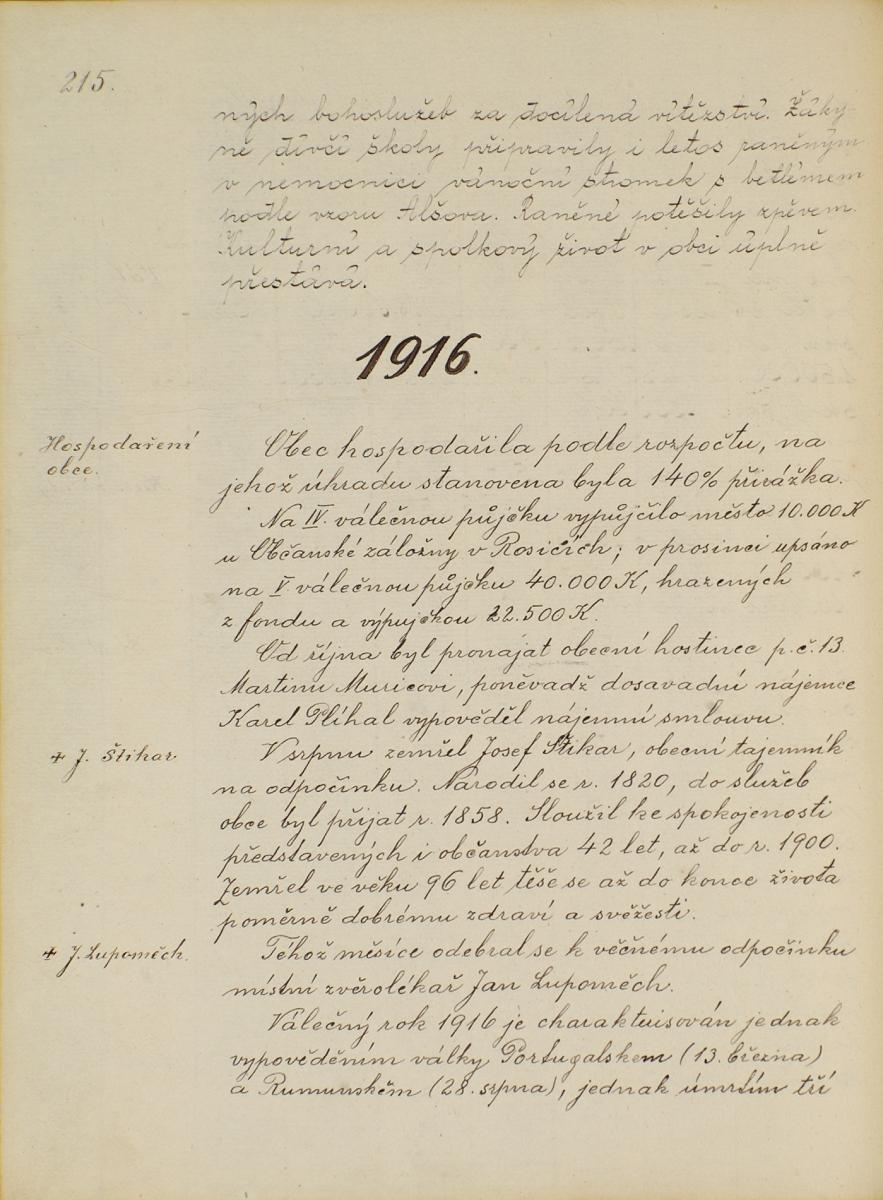 215.
ných bohoslužeb za docílená vítězství. Žáky-
ně dívčí školy připravily i letos raněným
v nemocnici vánoční stromek s betlémem
podle vzoru Alšova. Raněné potěšily zpěvem.
Kulturní a spolkový život v obci úplně
přestává.
1916.
Hospodaření
obce.
Obec hospodařila podle rozpočtu, na
jehož úhradu stanovena byla 140% přirážka.
Na IV. válečnou půjčku vypůjčilo město 10.000 K
u Občanské záložny v Rosicích; v prosinci upsáno
na V. válečnou půjčku 40.000 K, hrazených
z fondu a výpujčkou 22.500 K.
Od října byl pronajat obecní hostinec p. č. 13.
Martinu Muricovi, poněvadž dosavadní nájemce
Karel Plíhal vypověděl nájemní smlouvu.
+ J. Štikar
V srpnu zemřel Josef Štikar, obecní tajemník
na odpočinku. Narodil se r. 1820, do služeb
obce byl přijat r. 1858. Sloužil ke spokojenosti
představených i občanstva 42 let, až do r. 1900.
Zemřel ve věku 96 let těše se až do konce života
poměrně dobrému zdraví a svěžesti.
+ J. Lupoměch.
Téhož měsíce odebral se k věčnému odpočinku
místní zvěrolékař Jan Lupoměch.
Válečný rok 1916 je charakterisován jednak
vypověděním války Portugalskem (13. března)
a Rumunskem (28. srpna), jednak úmrtím tří